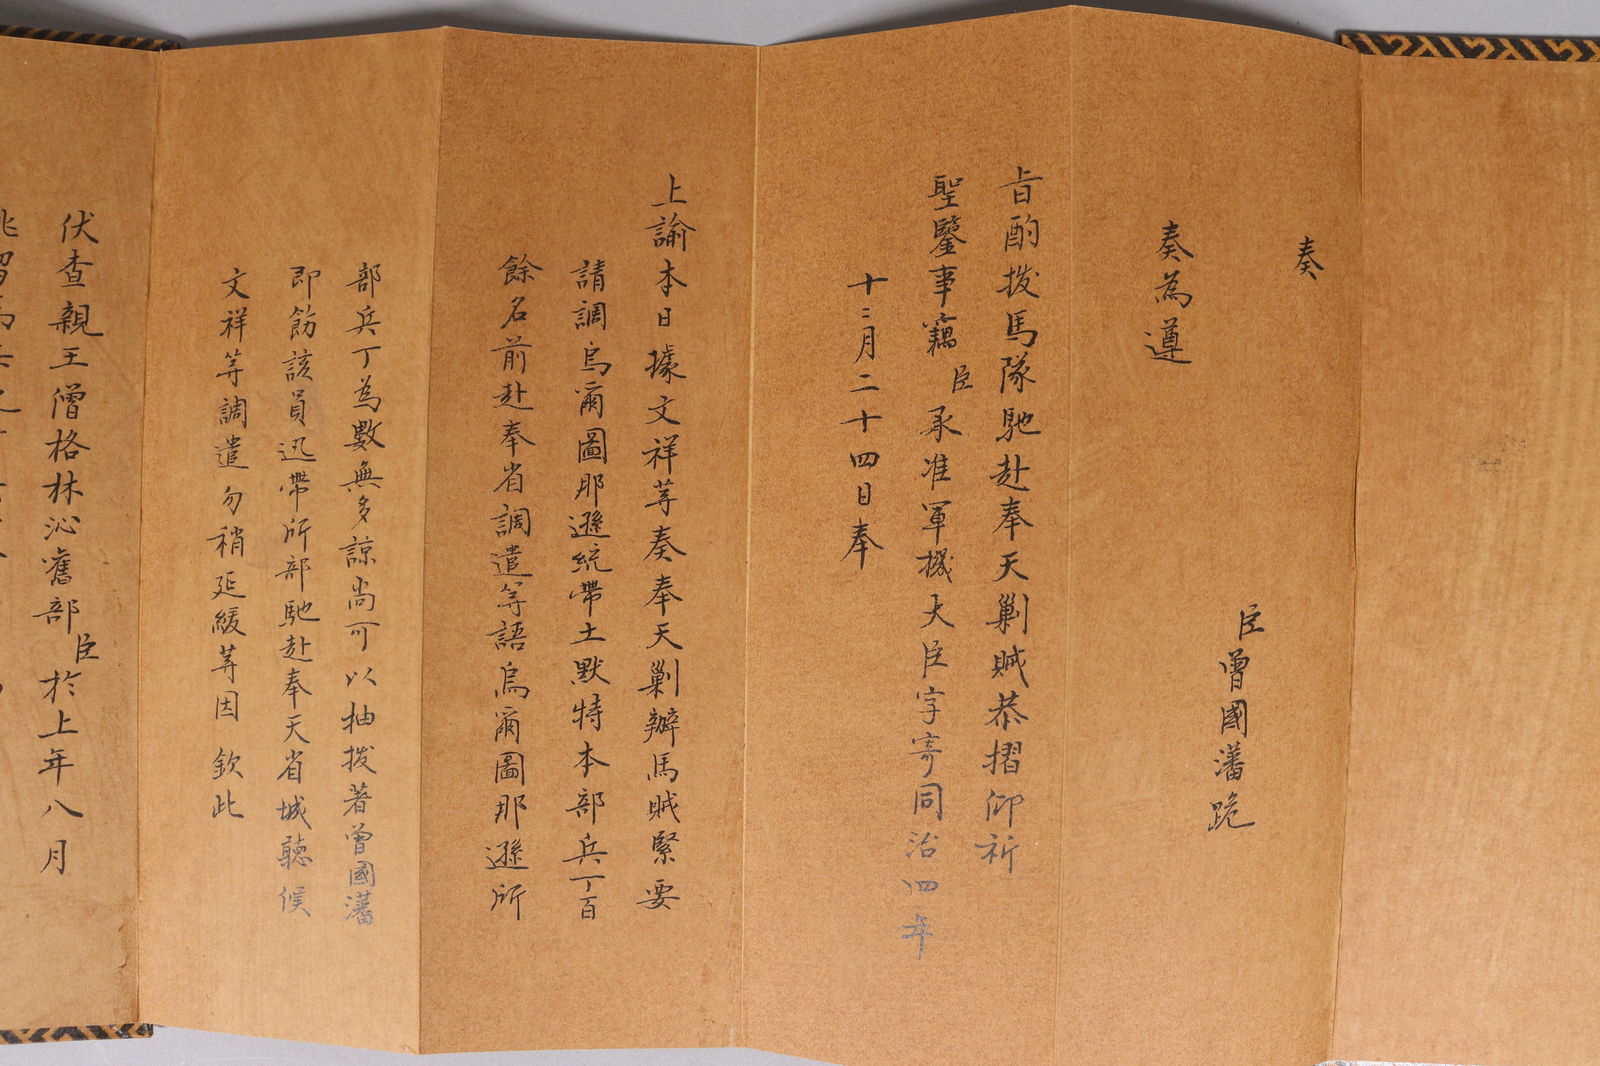 奏
臣曾國藩跪
奏為遵
旨酌撥馬隊馳赴奉天剿賊恭摺仰祈
聖鑒事竊臣承准軍機大臣字寄同治四年
十二月二十四日奉
上諭本日據文祥等奏奉天剿辦馬賊緊要
請調烏爾圖那遜統帶土默特本部兵丁百
餘名前赴奉省調遣等語烏爾圖那遜所
部兵丁為數無多諒尚可以抽撥著曾國藩
即飭該員迅帶所部馳赴奉天省城聽候
文祥等調遣勿稍延緩等因欽此
伏查親王僧格林沁舊部臣於上年八月